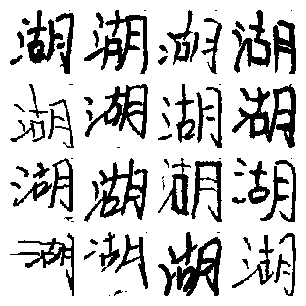 湖湖湖湖
湖湖湖湖
湖湖湖湖
湖湖湖湖